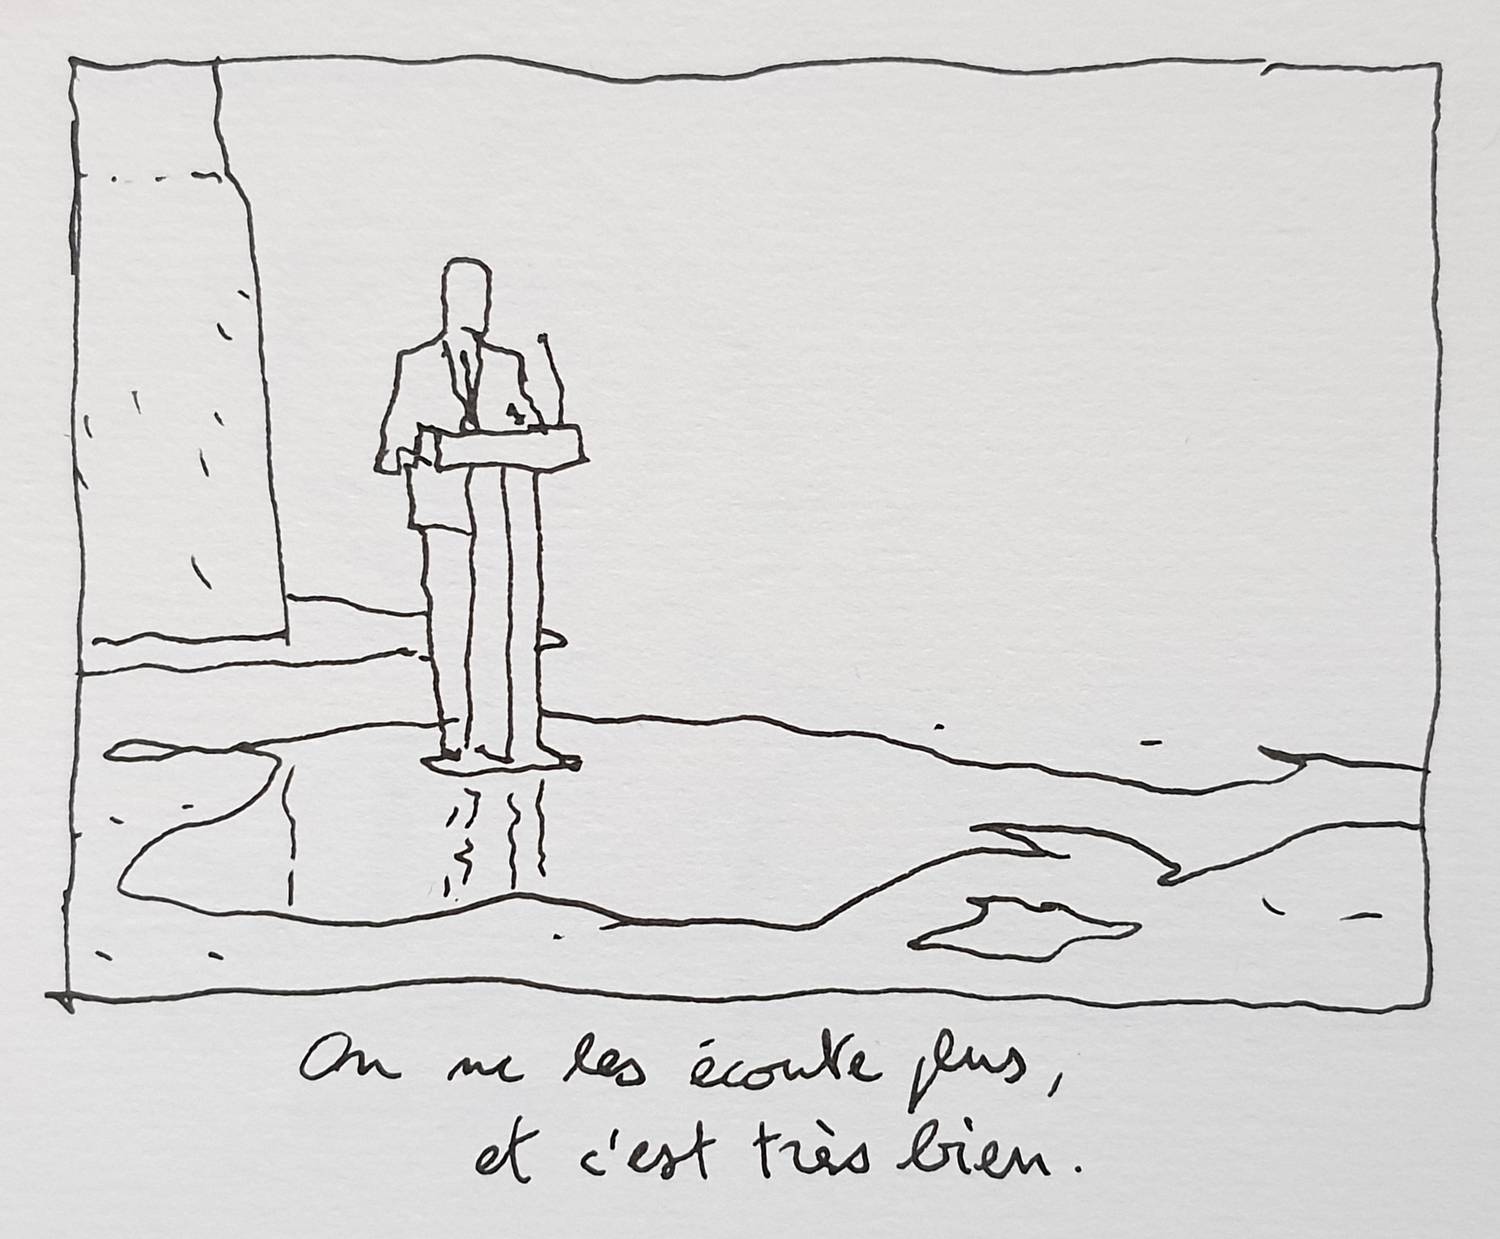 On ne les écoute plus,
et c'est très bien.